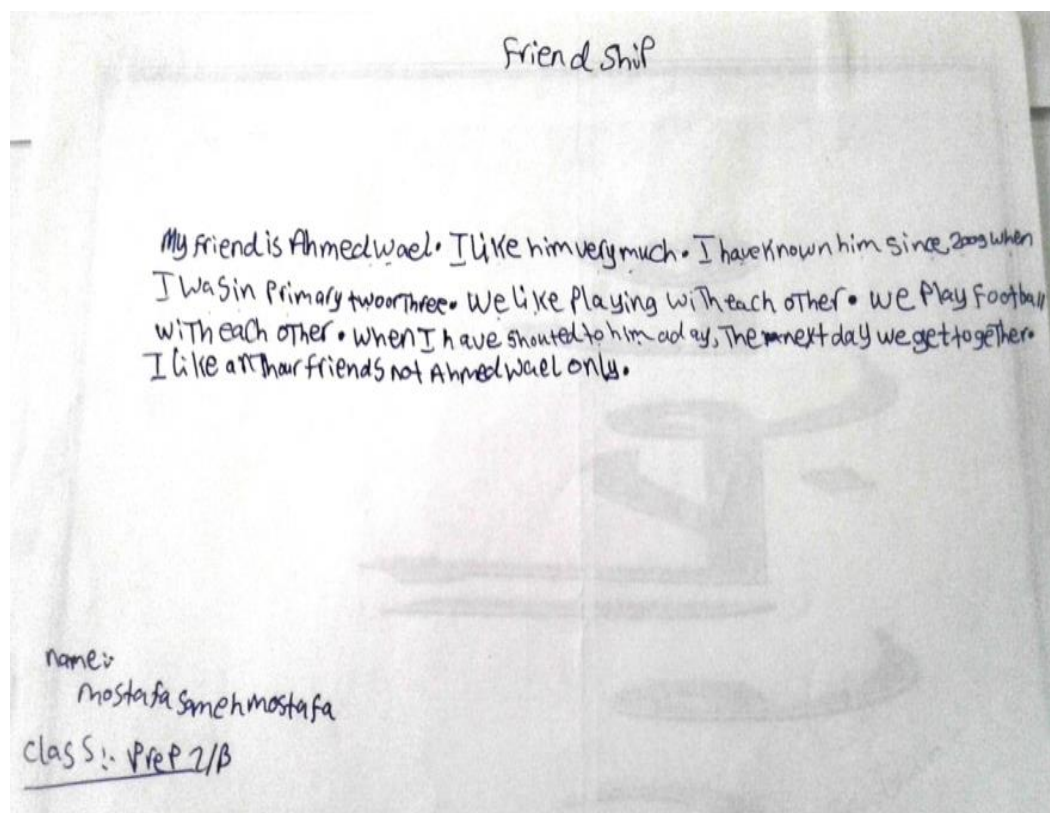 Friendship
My friend is Ahmed wael. I like him very much. I have known him since 2009 when
I was in Primary two or Three. We like Playing with each other. we Play Football
with each other. when I have shouted to him a day, The next day we get together.
I like friends not Ahmed wael only.
name:
mostafa sameh mostafa
class:. Prep 2/B